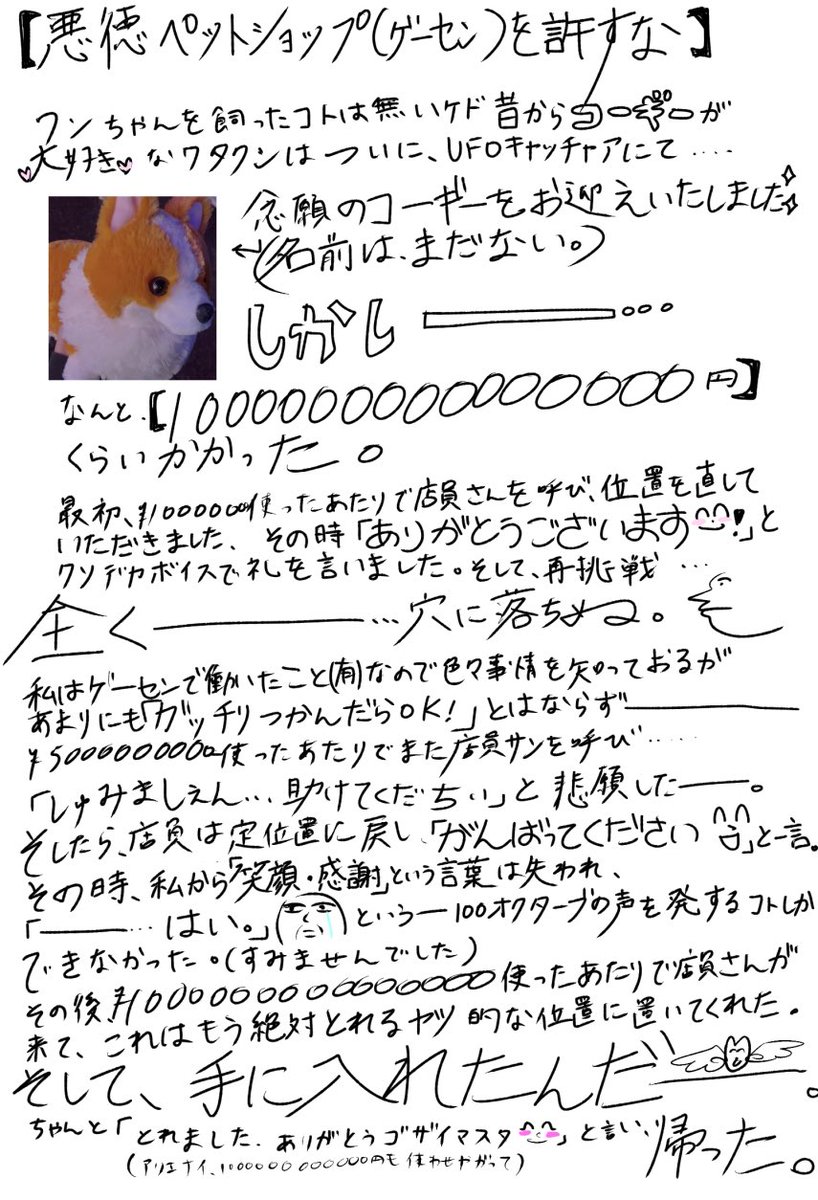 【悪徳ペットショップ(ゲーセン)を許すな】
ワンちゃんを飼ったコトは無いケド昔からコーギーが
大好きなワタクシはついに、UFOキャッチャアにて‥‥
念願のコーギーをお迎えいたしました
←(名前は、まだない。)
しかし――――…
なんと、【10000000000000000円】
くらいかかった。
最初、¥100000使ったあたりで店員さんを呼び、位置を直して
いただきました、その時「ありがとうございます!」と
クソデカボイスで礼を言いました。そして、再挑戦…
全く――――…穴に落ちぬ。
私はゲーセンで働いたこと(有)なので色々事情を知っておるが
あまりにも「ガッチリつかんだらOK!」とはならず――――
¥5000000000使ったあたりでまた店員サンを呼び‥‥
「しゅみましぇん…助けてくだちぃ」と悲願した――。
そしたら、店員は定位置に戻し、「がんばってください」と一言。
その時、私から「笑顔・感謝」という言葉は失われ、
「――――…はい。」という―100オクターブの声を発するコトしか
できなかった。(すみませんでした)
その後¥10000000000000000使ったあたりで店員さんが
来て、これはもう絶対とれるヤツ的な位置に置いてくれた。
そして、手に入れたんだ――。
ちゃんと「とれました、ありがとうゴザイマスタ」と言い、帰った。
(アリエナイ、1000000000000円も使わせやがって)